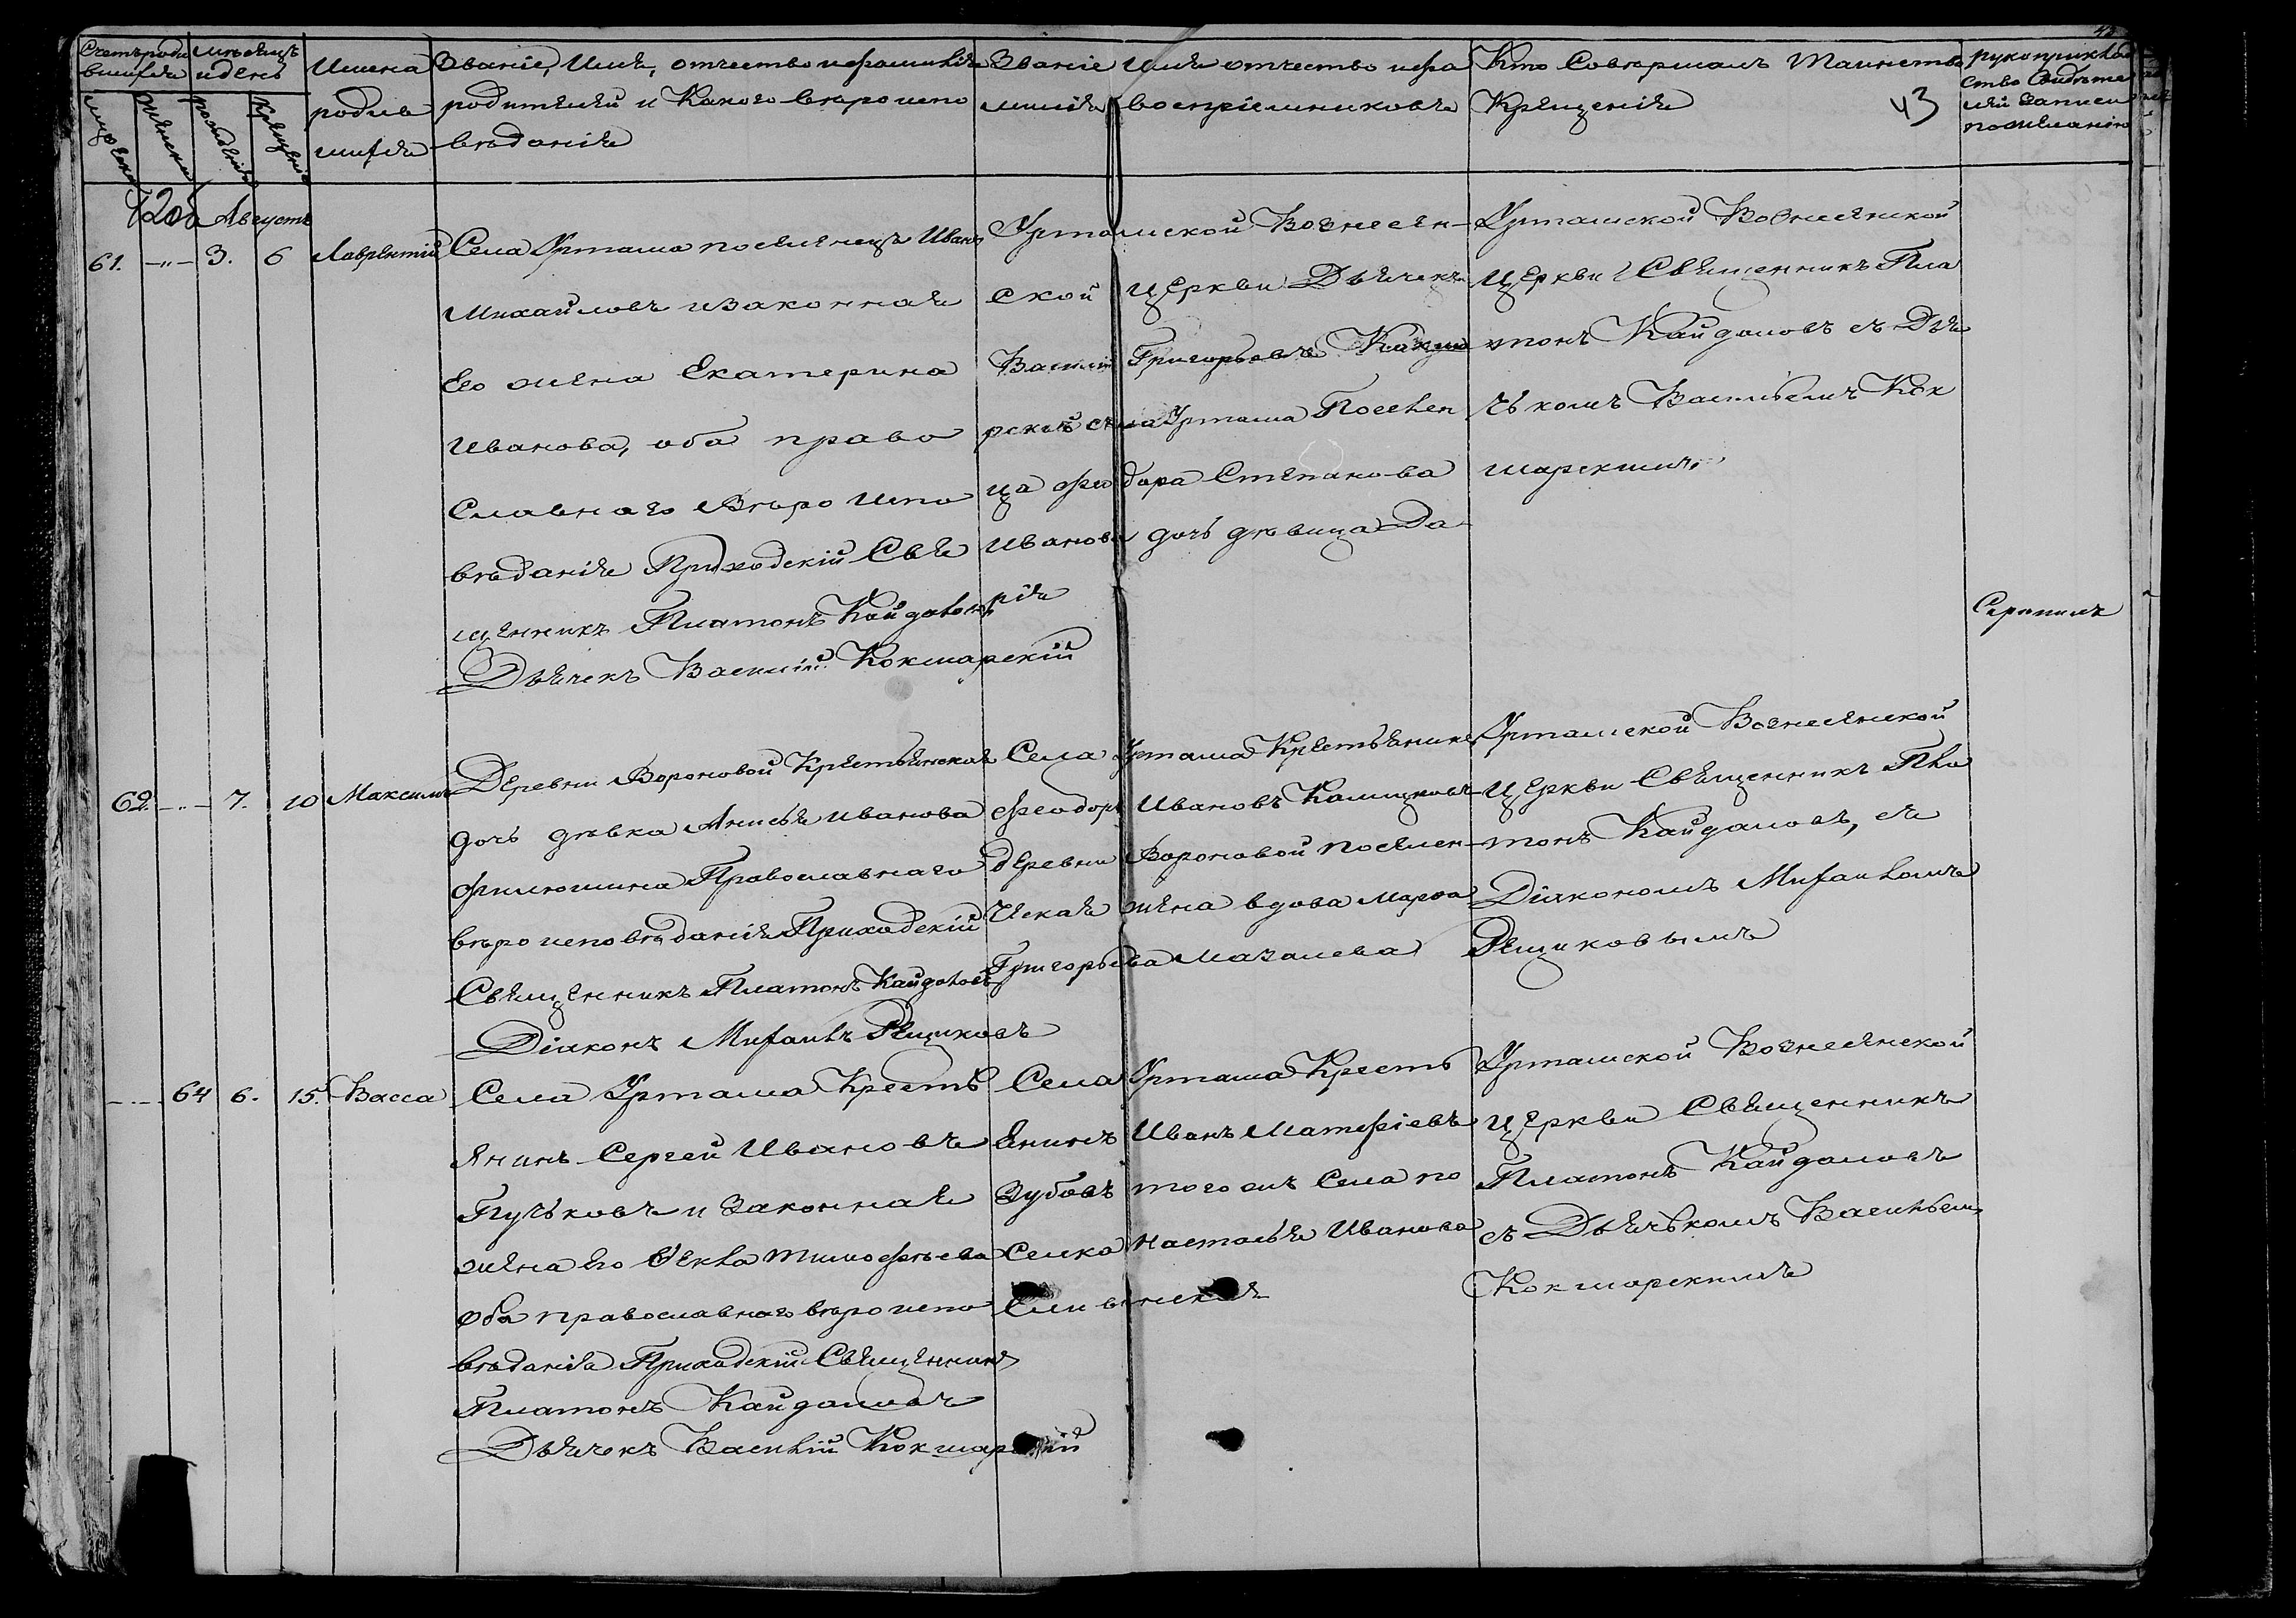 Счетъ роди
вшихся
мужеска
женска
мѣсяцъ
и день
рожденія
крещенія
Имена
родив
шихся
Званіе, Имя, отчество и фамилія
родителей и Какого вѣроиспо
вѣданія
Званіе имя отчество и фа
милія воспріемниковъ
Кто Совершалъ Таинство
Крещенія
43
рукоприклад
ство Свидѣте
лей записи
по желанію
42об Августъ
61. —"— 3. 6 Лаврентій
Села Уртама поселенецъ Иванъ
Михайловъ и законная
Его жена Екатерина
Иванова, оба право
Славнаго Вѣро испо
вѣданія Приходскій Свя
щенникъ Платонъ Кайдаловъ
Дьячекъ Василій Кокшарскій
Уртамской Вознесен-
ской церкви Дьячекъ
Василій Григорьевъ Кокша
рскій села Уртама Поселен
ца Феодора Степанова
Иванова дочь дѣвица Да-
рія
Уртамской Вознесенской
Церкви Священникъ Пла
тонъ Кайдаловъ съ Дья
чькомъ Васильемъ Кок
шарскимъ
Серапимъ
62. —"— 7. 10 Максимъ
Деревни Вороновой Крестьянская
дочь дѣвка Анисья Иванова
Филюшина Православнаго
вѣроисповѣданія Приходскій
Священникъ Платонъ Кайдаловъ
Діаконъ Михаилъ Рещиковъ
Села Уртама Крестьянинъ
Феодоръ Ивановъ Калицковъ
деревни Вороновой поселен-
ческая жена вдова Марфа
Григорьева Мазалева
Уртамской Вознесенской
Церкви Священникъ Пла
тонъ Кайдаловъ, съ
Діакономъ Михаиломъ
Рещиковымъ
—"— 64 6. 15. Васса
Села Уртама Кресть
янинъ Сергей Ивановъ
Пучьковъ и Законная
жена его Фекла Тимофѣева
Оба православнаго вѣроиспо
вѣданія Приходскій Священникъ
Платонъ Кайдаловъ
Дьячекъ Василій Кокшарскій
Села Уртама Кресть
янинъ Иванъ Матфіевъ
Зубовъ того жъ Села по
селка Настасья Иванова
Уртамской Вознесенской
Церкви Священникъ
Платонъ Кайдаловъ
съ Дьячькомъ Васильемъ
Кокшарскимъ